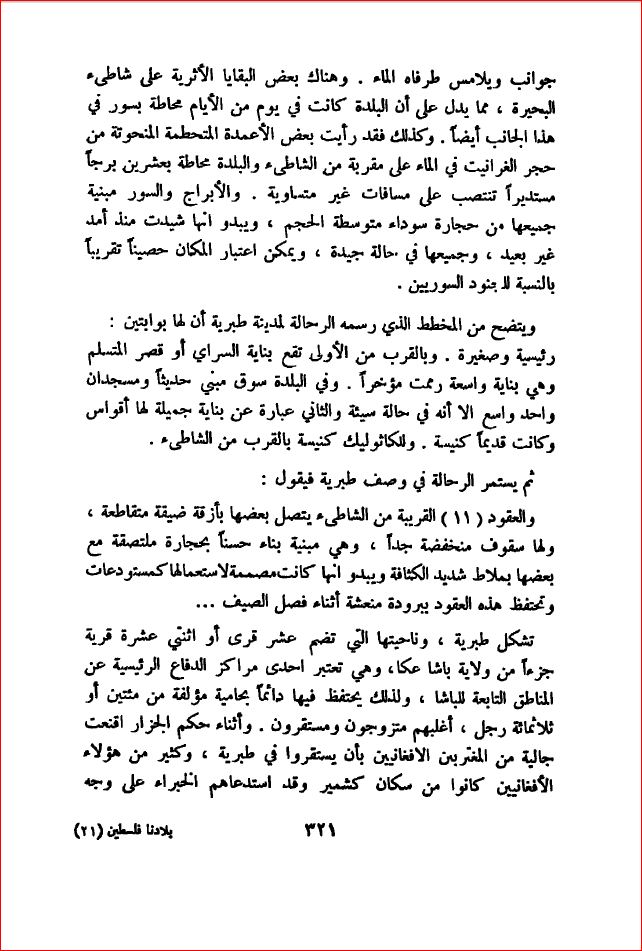 جوانب ويلامس طرفاه الماء . وهناك بعض البقايا الأثرية على شاطىء
البحيرة ، مما يدل على أن البلدة كانت في يوم من الأيام محاطة بسور في
هذا الجانب أيضاً . وكذلك فقد رأيت بعض الأعمدة المتحطمة المنحوتة من
حجر الغرانيت في الماء على مقربة من الشاطىء والبلدة محاطة بعشرين برجاً
مستديراً تنتصب على مسافات غير متساوية . والأبراج والسور مبنية
جميعها من حجارة سوداء متوسطة الحجم ، ويبدو انها شيدت منذ أمد
غير بعيد ، وجميعها في حالة جيدة ، ويمكن اعتبار المكان حصيناً تقريباً
بالنسبة للجنود السوريين .
ويتضح من المخطط الذي رسمه الرحالة لمدينة طبرية أن لها بوابتين :
رئيسية وصغيرة . وبالقرب من الأولى تقع بناية السراي أو قصر المتسلم
وهي بناية واسعة رممت مؤخراً . وفي البلدة سوق مبني حديثاً ومسجدان
واحد واسع الا أنه في حالة سيئة والثاني عبارة عن بناية جميلة لها أقواس
وكانت قديماً كنيسة . وللكاثوليك كنيسة بالقرب من الشاطىء .
ثم يستمر الرحالة في وصف طبرية فيقول :
والعقود (١١) القريبة من الشاطىء يتصل بعضها بأزقة ضيقة متقاطعة ،
ولها سقوف منخفضة جداً ، وهي مبنية بناء حسناً بحجارة ملتصقة مع
بعضها بملاط شديد الكثافة ويبدو انها كانت مصممة لاستعمالها كمستودعات
وتحتفظ هذه العقود ببرودة منعشة أثناء فصل الصيف ...
تشكل طبرية ، وناحيتها التي تضم عشر قرى أو اثنتي عشرة قرية
جزءاً من ولاية باشا عكا، وهي تعتبر احدى مراكز الدفاع الرئيسية عن
المناطق التابعة للباشا ، ولذلك يحتفظ فيها دائماً بحامية مؤلفة من مئتين أو
ثلاثمائة رجل ، أغلبهم متزوجون ومستقرون . وأثناء حكم الجزار اقنعت
جالية من المغتربين الافغانيين بأن يستقروا في طبرية ، وكثير من هؤلاء
الأفغانيين كانوا من سكان كشمير وقد استدعاهم الخبراء على وجه
٣٢١
بلادنا فلسطين (٢١)